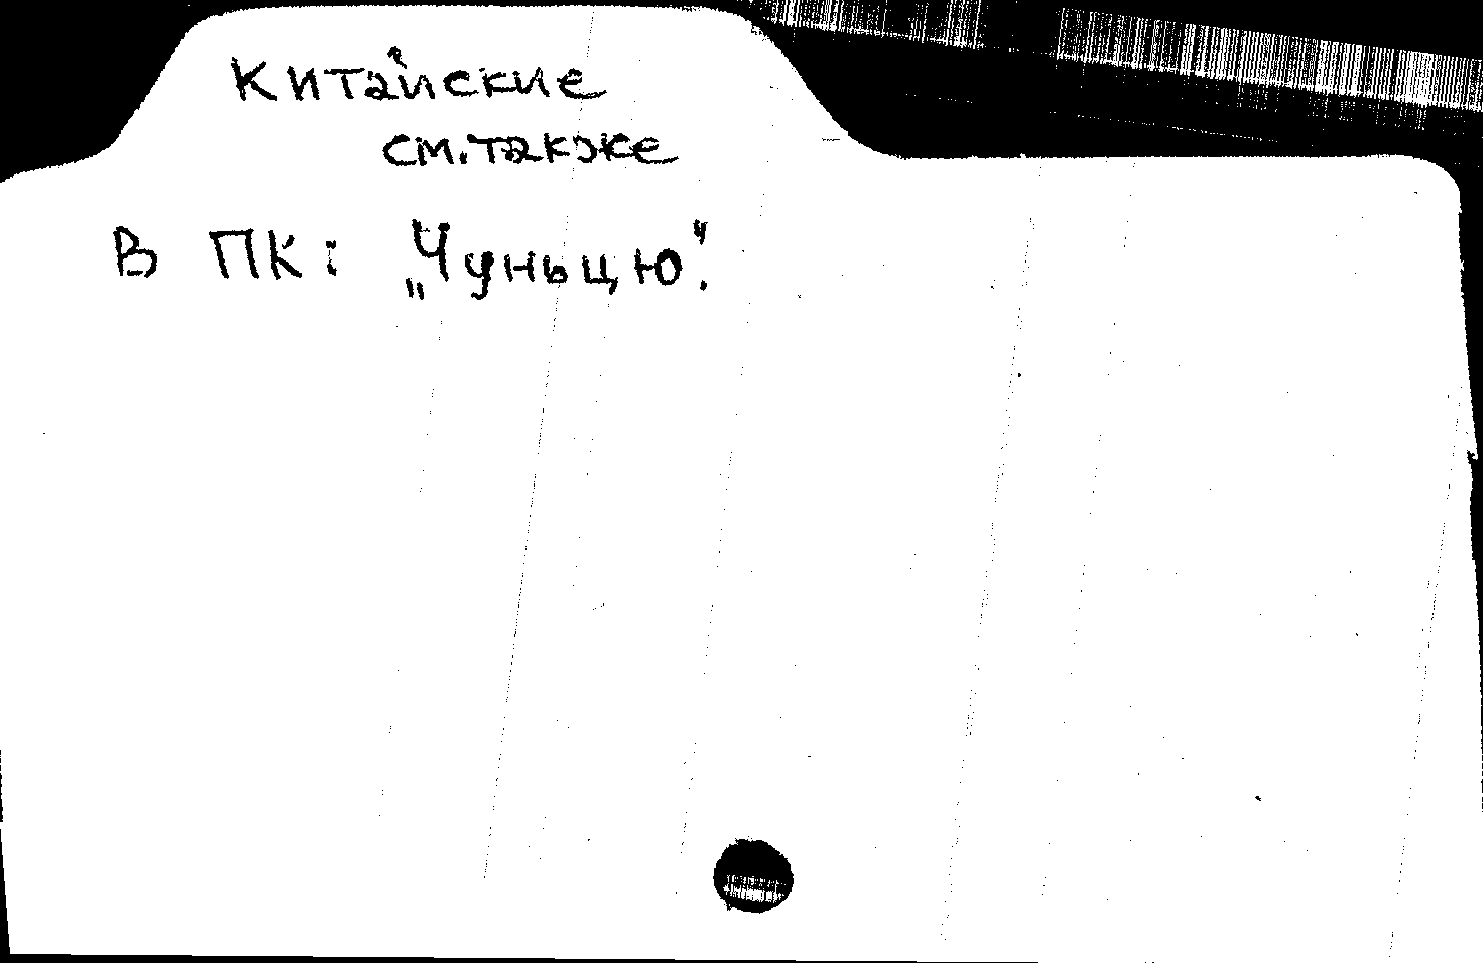 Китайские
см. также
В ПК: „Чуньцю".